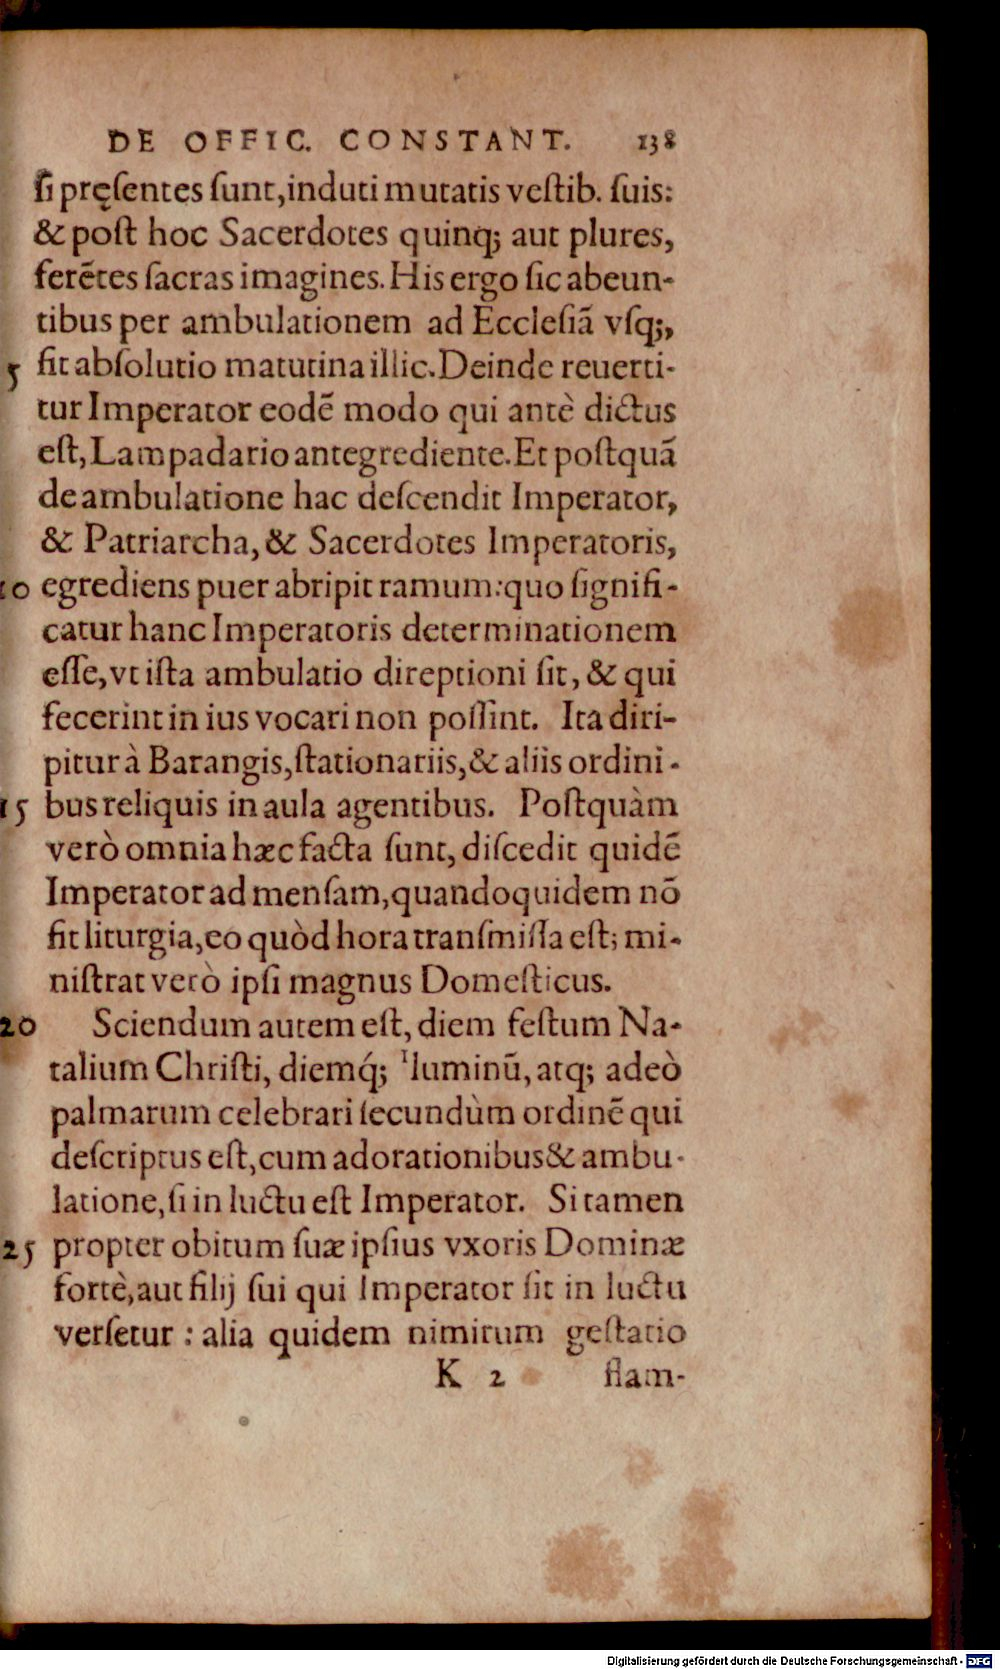 DE OFFIC. CONSTANT. 138
ſi pręſentes ſunt, induti mutatis veſtib. ſuis:
& poſt hoc Sacerdotes quinq; aut plures,
ferẽtes ſacras imagines. His ergo ſic abeun-
tibus per ambulationem ad Eccleſiã vſq;,
5 fit abſolutio matutina illic. Deinde reuerti-
tur Imperator eodẽ modo qui antè dictus
eſt, Lampadario antegrediente. Et poſtquã
de ambulatione hac deſcendit Imperator,
& Patriarcha, & Sacerdotes Imperatoris,
10 egrediens puer abripit ramum: quo ſignifi-
catur hanc Imperatoris determinationem
eſſe, vt iſta ambulatio direptioni ſit, & qui
fecerint in ius vocari non poſſint. Ita diri-
pitur à Barangis, ſtationariis, & aliis ordini-
15 bus reliquis in aula agentibus. Poſtquàm
verò omnia hæc facta ſunt, diſcedit quidẽ
Imperator ad menſam, quandoquidem nõ
fit liturgia, eo quòd hora tranſmiſſa eſt; mi-
niſtrat verò ipſi magnus Domeſticus.
20 Sciendum autem eſt, diem feſtum Na-
talium Chriſti, diemq́; ¹luminũ, atq; adeò
palmarum celebrari ſecundùm ordinẽ qui
deſcriptus eſt, cum adorationibus & ambu-
latione, ſi in luctu eſt Imperator. Si tamen
25 propter obitum ſuæ ipſius vxoris Dominæ
fortè, aut filij ſui qui Imperator ſit in luctu
verſetur : alia quidem nimirum geſtatio
K 2 flam-
Digitalisierung gefördert durch die Deutsche Forschungsgemeinschaft - DFG